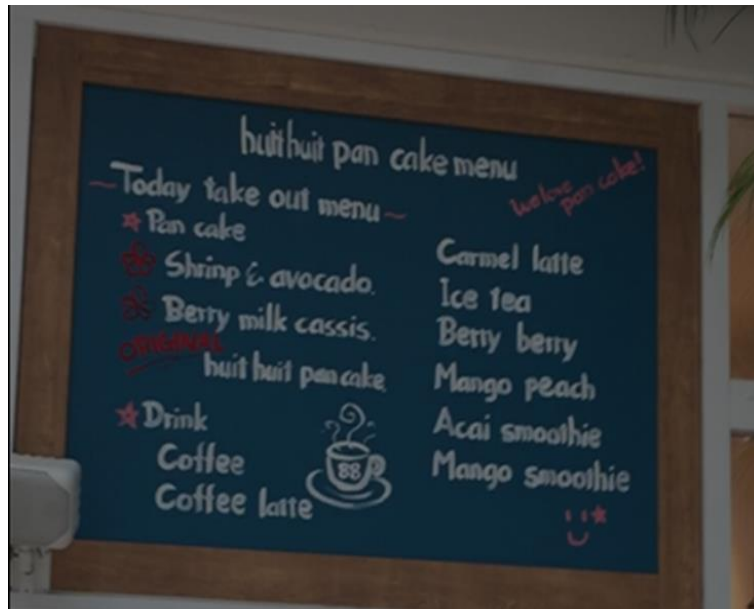 huit huit pan cake menu
we love pan cake!
~Today take out menu~
Pan cake
Shrinp & avocado.
Berry milk cassis.
ORIGINAL
huit huit pan cake
Drink
Coffee
Coffee latte
88
Carmel latte
Ice tea
Berry berry
Mango peach
Acai smoothie
Mango smoothie